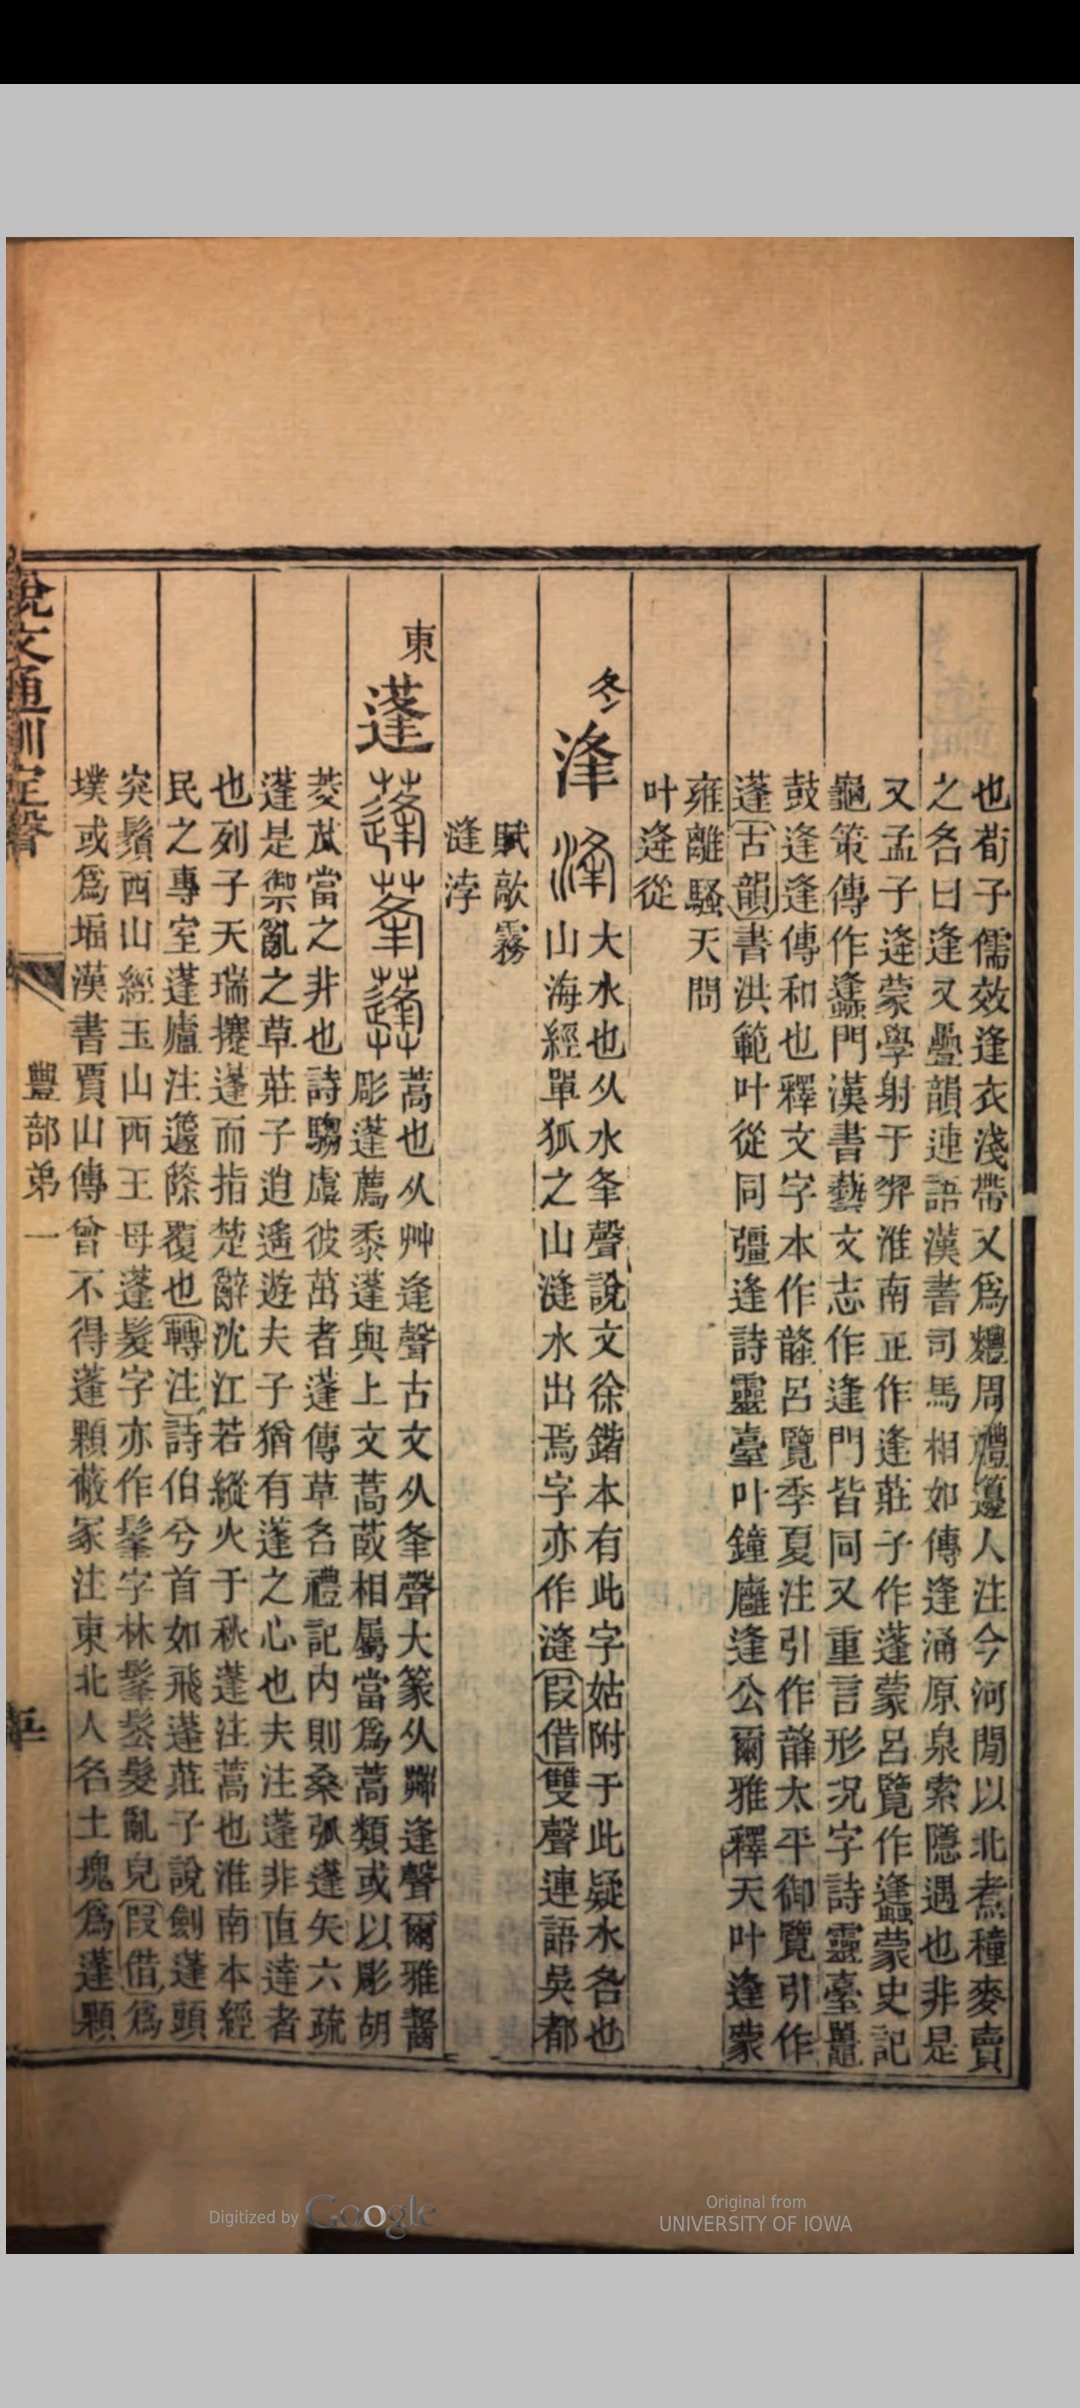 也荀子儒效逢衣淺帶又爲麷周禮籩人注今河閒以北煮穜麥賣
之名曰逢又疊韻連語漢書司馬相如傳逢涌原泉索隱遇也非是
又孟子逄蒙學射于羿淮南正作逢莊子作蓬蒙呂覽作蠭蒙史記
龜策傳作蠭門漢書藝文志作逢門皆同又重言形況字詩靈臺鼉
鼓逢逢傳和也釋文字本作韸呂覽季夏注引作韸太平御覽引作
蓬古韻書洪範叶從同彊逢詩靈臺叶鐘廱逢公爾雅釋天叶逢蒙
雍離騷天問
叶逄從
冬
浲
大水也从水夆聲說文徐鍇本有此字姑附于此疑水名也
山海經單狐之山漨水出焉字亦作漨叚借雙聲連語吳都
賦歊霧
漨浡
東
蓬
蒿也从艸逢聲古文从夆聲大篆从茻逢聲爾雅齧
彫蓬薦黍蓬與上文蒿菣相屬當爲蒿類或以彫胡
菱苽當之非也詩騶虞彼茁者蓬傳草名禮記內則桑弧蓬矢六疏
蓬是禦亂之草莊子逍遙遊夫子猶有蓬之心也夫注蓬非直達者
也列子天瑞攓蓬而指楚辭沈江若縱火于秋蓬注蒿也淮南本經
民之專室蓬廬注籧篨覆也轉注詩伯兮首如飛蓬莊子說劍蓬頭
突鬢西山經玉山西王母蓬髮字亦作髼字林髼鬆髮亂皃叚借爲
墣或爲堛漢書賈山傳曾不得蓬顆蔽冢注東北人名土塊爲蓬顆
說文通訓定聲
豐部弟一
Digitized by Google
Original from
UNIVERSITY OF IOWA